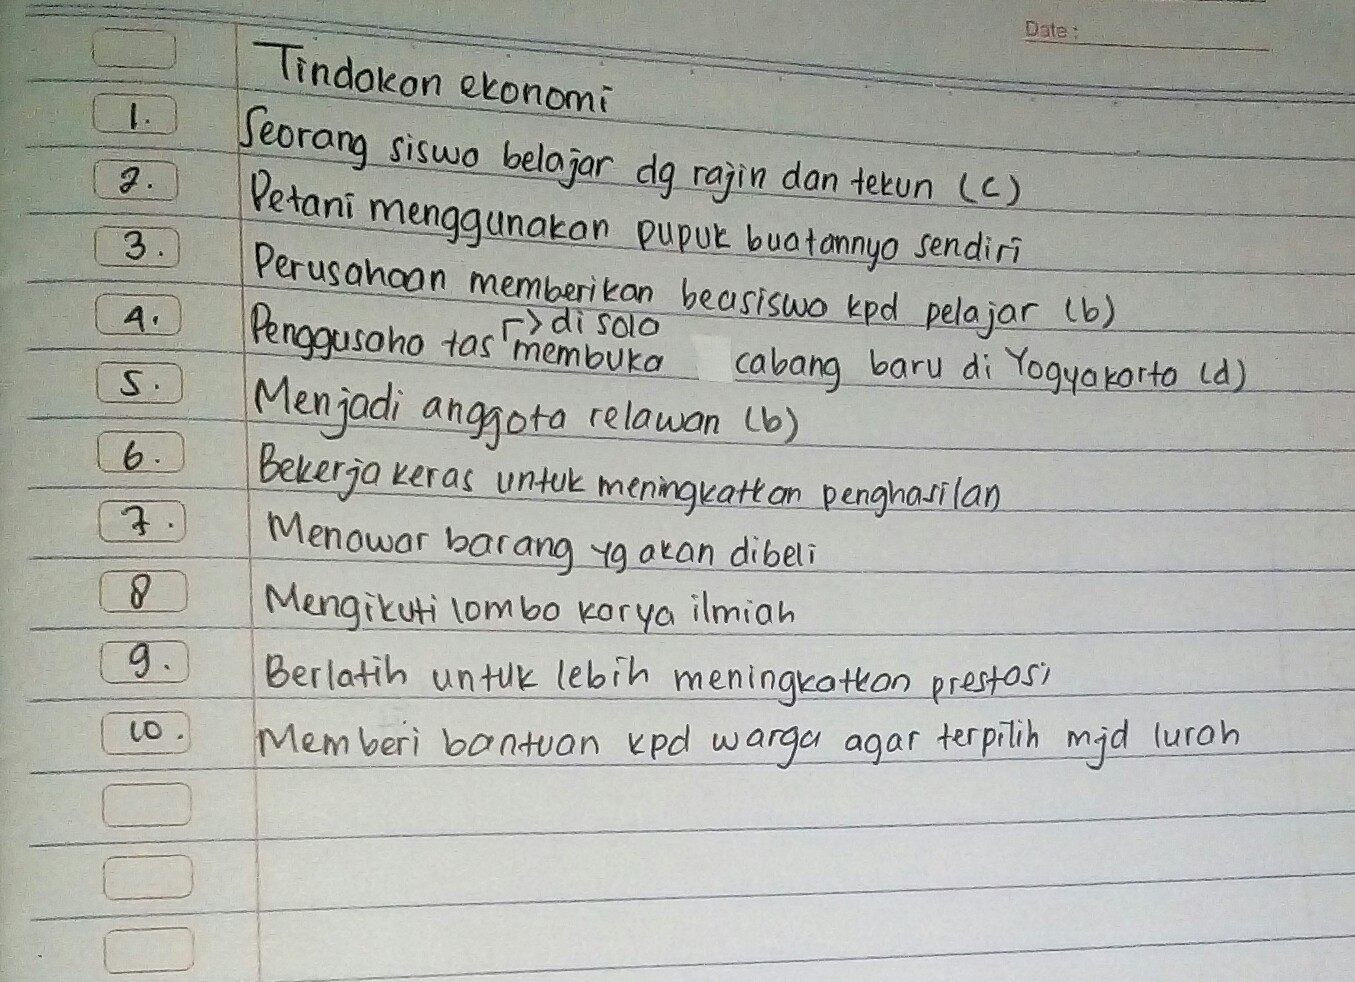 Date :
Tindakan ekonomi
1. Seorang siswa belajar dg rajin dan tekun (c)
2. Petani menggunakan pupuk buatannya sendiri
3. Perusahaan memberikan beasiswa kpd pelajar (b)
→ di solo
4. Penggusaha tas membuka cabang baru di Yogyakarta (d)
5. Menjadi anggota relawan (b)
6. Bekerja keras untuk meningkatkan penghasilan
7. Menawar barang yg akan dibeli
8 Mengikuti lomba karya ilmiah
9. Berlatih untuk lebih meningkatkan prestasi
10. Memberi bantuan kpd warga agar terpilih mjd lurah